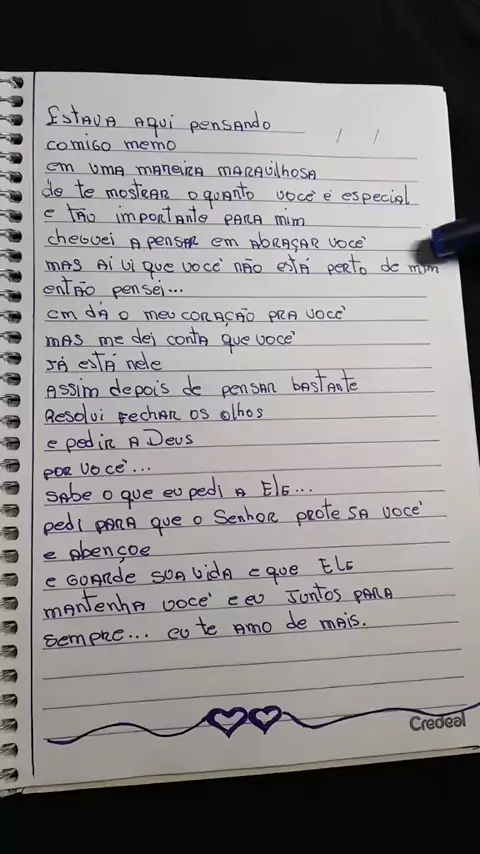 Estava aqui pensando
comigo memo
em uma maneira maravilhosa
de te mostrar o quanto você é especial
e tão importante para mim
cheguei a pensar em abraçar você
mas aí vi que você não está perto de mim
então pensei...
em dá o meu coração pra você
mas me dei conta que você
já está nele
Assim depois de pensar bastante
Resolvi fechar os olhos
e pedir a Deus
por você...
Sabe o que eu pedi a Ele...
pedi para que o Senhor protesa você
e abençoe
e guarde sua vida e que Ele
mantenha você e eu juntos para
sempre... eu te amo de mais.
Credeal